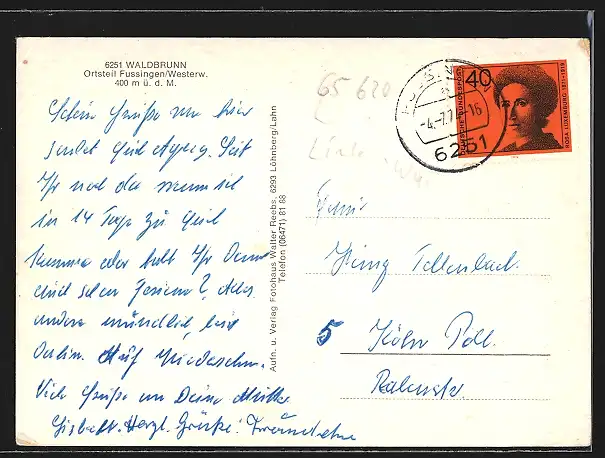 6251 WALDBRUNN
Ortsteil Fussingen/Westerw.
400 m ü. d. M.
Schöne Grüße von hier
sendet Euch Seid
Ihr noch da wenn ich
in 14 Tage zu Euch
komme oder habt Ihr dann
auch schon Ferien? Alles
andere mündlich, bis
dahin. Auf Wiedersehn.
Viele Grüße an Deine Mutter
Herzl. Grüße
Aufn. u. Verlag Fotohaus Walter Reebs, 6293 Löhnberg/Lahn
Telefon (06471) 81 68
65 620
-4.-7.7 -16
6251
40
DEUTSCHE BUNDESPOST
ROSA LUXEMBURG 1871-1919
Tellenbach.
5 Köln Poll.